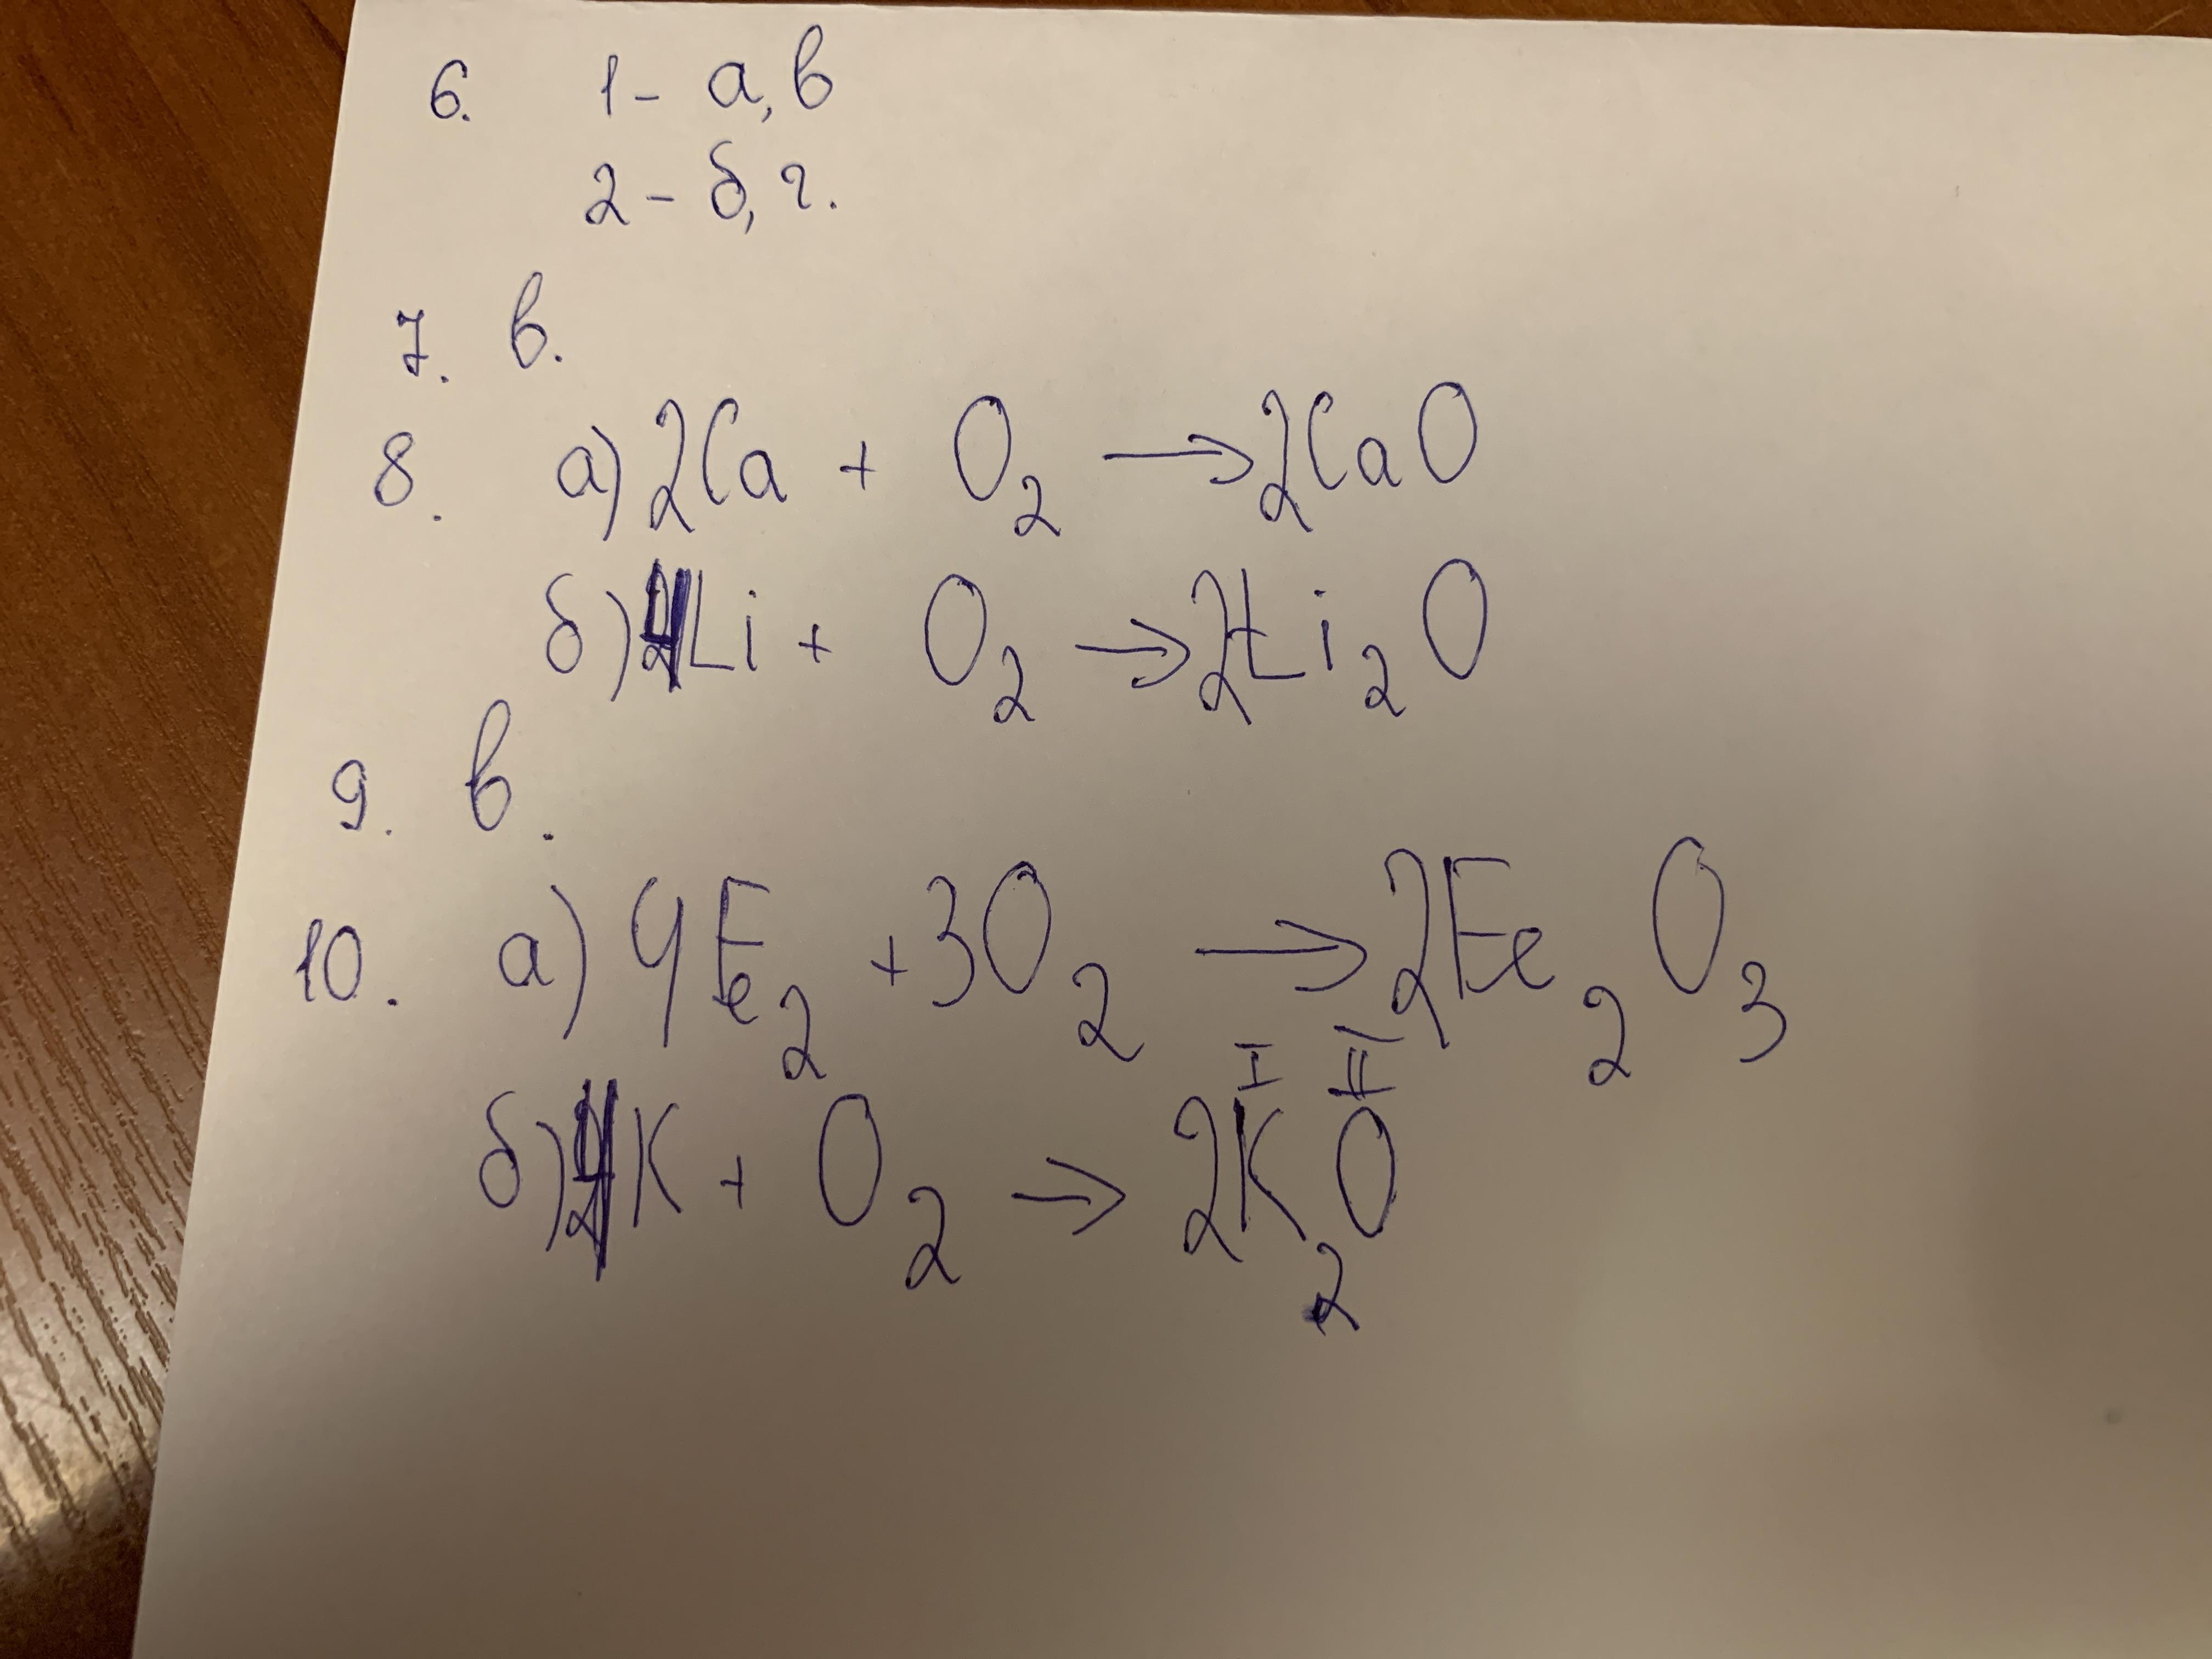 6. 1 - а, в
2 - б, г.
7. в.
8. а) 2Ca + O₂ → 2CaO
б) 4Li + O₂ → 2Li₂O
9. в.
10. а) 4Fe₂ + 3O₂ → 2Fe₂O₃
I II
б) 4K + O₂ → 2K₂O